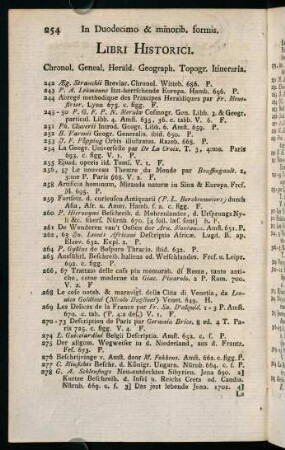 254 In Duodecimo & minorib. formis.
LIBRI HISTORICI.
Chronol. Geneal. Herald. Geograph. Topogr. Itineraria.
242 Æg. Strauchii Breviar. Chronol. Witteb. 686. P.
243 P. A. Lehmanns itzt-herrschende Europa. Hamb. 696. P.
244 Abregé methodique des Principes Heraldiques par Fr. Menestrier. Lyon 675. c. figg. P.
245-50 P. G. F. P. N.
particul. Libb. 4. Amst. 635. 36. c. tabb. V. 6. F.
251 Ph. Cluverii Introd. Geogr. Libb. 6. Amst. 659. P.
252 B. Varenii Geogr. Generalis. ibid. 650. P.
253 Orbis illustratus. Razeb. 668. P.
254 La Geogr. Universelle par De La Croix. T. 3. Paris
693. c. figg. V. 1. P.
255 Ejusd. operis iid. Tomi. V. 1. F
256, 57 Le nouveau Theatre du Monde par
Paris 668. V. 2. P.
258 Artificia hominum, Miranda naturæ in Sina & Europa. Fref.
M. 695. P.
259 Fortleti. d. curieusen Antiquarii durch
Asia, Afr. u. Amer. Hamb. c. Fig. F.
260 P. Hieronymi Beschreib. d.
261 De Wonderen van't Oosten door Amst. 651. P.
262, 63 Jo. Leonis Africani Descriptio Africæ. Lugd. B. ap.
Elzev. 632. Expl. 2. P.
264 P. Gyllius de Bosporo Thracio. ibid. 632. P.
265 Ausführl. Beschreib. Italiens od Welschlandes. Fref. u. Leipz.
692. c. figg. F.
266, 67 Trattato delle cose piu memorab. di Roma, tanto antiche, come moderne da Giac. Pinarolo. 2 P. Rom. 700.
V. 2. F
268 Le cose notab. & maravigl. della Citta di Venetia, da Leonico Goldioni (Nicolo Doglioni) Venet. 649. H.
269 Les Delices de la France par Fr. Sav. d'Alquié. 1-3 P. Amst.
670. c. tab. V. 1. P.
270-73 Description de Paris par Germain Brice, 2 ed. 4 T. Paris 705. c. figg. V. 4. F.
274 L. Guicciardini Belgii Descriptio. Amst. 652. c. figg. P.
275 Der allgem. Wegweiser in d. Niederland, aus d. Frantz.
Fref. 673. P.
276 Beschrijvinge v. Amst. door M. Fokkens. Amst. 662. c. figg. P.
277 Beschr. d. Königr. Ungarn. Nürnb. 664. c. f. P
278 G. A. Schleusings Neu-entdecktes Sibyrien. Jena 690. 2]
Kurtze Beschreib. d. Insel u. Reichs Creta od. Candia.
Nürnb. 669. c. f. 3] Das jetz lebende Jena. 1701. 4]
La